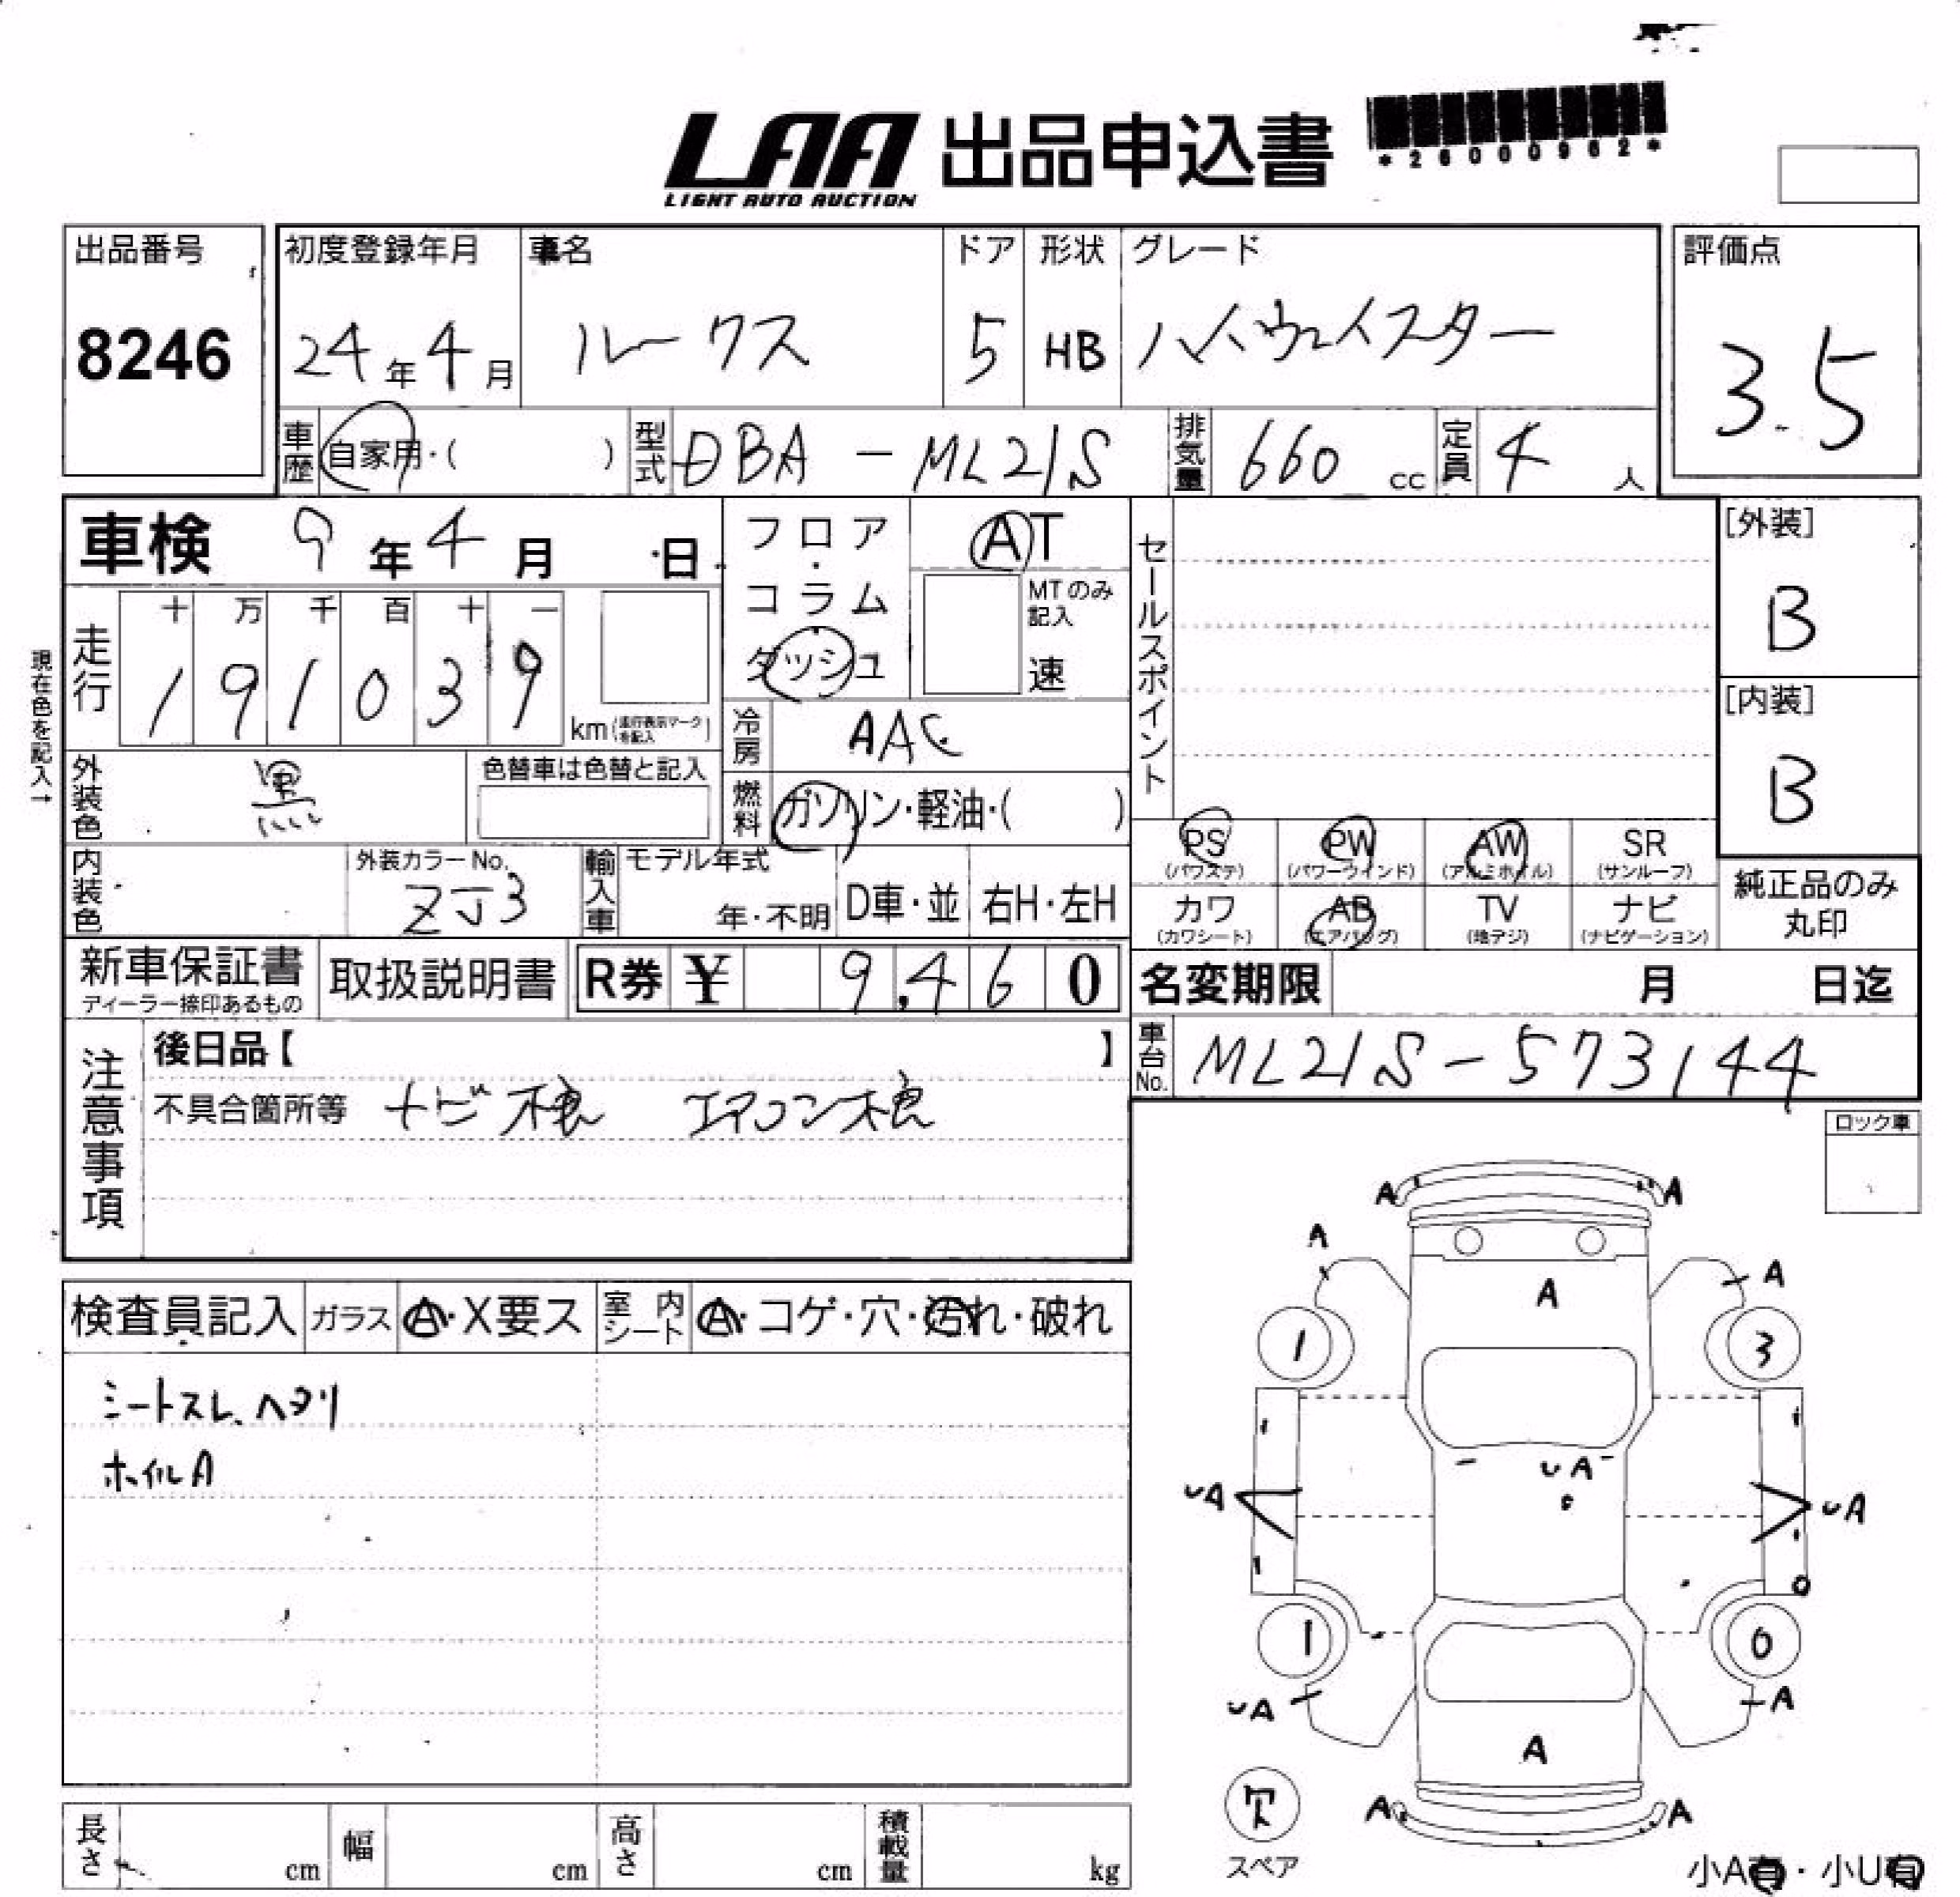 LAA 出品申込書
LIGHT AUTO AUCTION
*26000962*
出品番号
8246
初度登録年月 車名 ドア 形状 グレード
24年4月 ルークス 5 HB ハイウェイスター
評価点
3.5
車歴 自家用・( ) 型式 DBA-ML21S 排気量 660 cc 定員 4 人
車検 9年4月 日
フロア・コラム ダッシュ
AT
MTのみ記入
速
セールスポイント
[外装]
B
[内装]
B
現在色を記入→
走行 十 万 千 百 十 一
1 9 1 0 3 9 km(走行表示マークを記入)
冷房 AAC
外装色 黒 色替車は色替と記入
燃料 ガソリン・軽油・( )
PS PW AW SR
(パワステ) (パワーウインド) (アルミホイル) (サンルーフ)
カワ AB TV ナビ
(カワシート) (エアバッグ) (地デジ) (ナビゲーション)
純正品のみ
丸印
内装色 外装カラーNo. ZJ3 輸入車 モデル年式 年・不明 D車・並 右H・左H
新車保証書 取扱説明書 R券 ¥ 9,460
ディーラー捺印あるもの
名変期限 月 日迄
車台No. ML21S-573144
注意事項
後日品【 】
不具合箇所等 ナビ横 エアコン横
ロック車
検査員記入 ガラス A・X要ス 室内シート A・コゲ・穴・汚れ・破れ
シートスレ、ヘタリ
ホイルA
A A
A A
A
1 3
UA
UA UA
1 0
UA A
A
A A
欠
スペア
長さ cm 幅 cm 高さ cm 積載量 kg
小A有・小U有